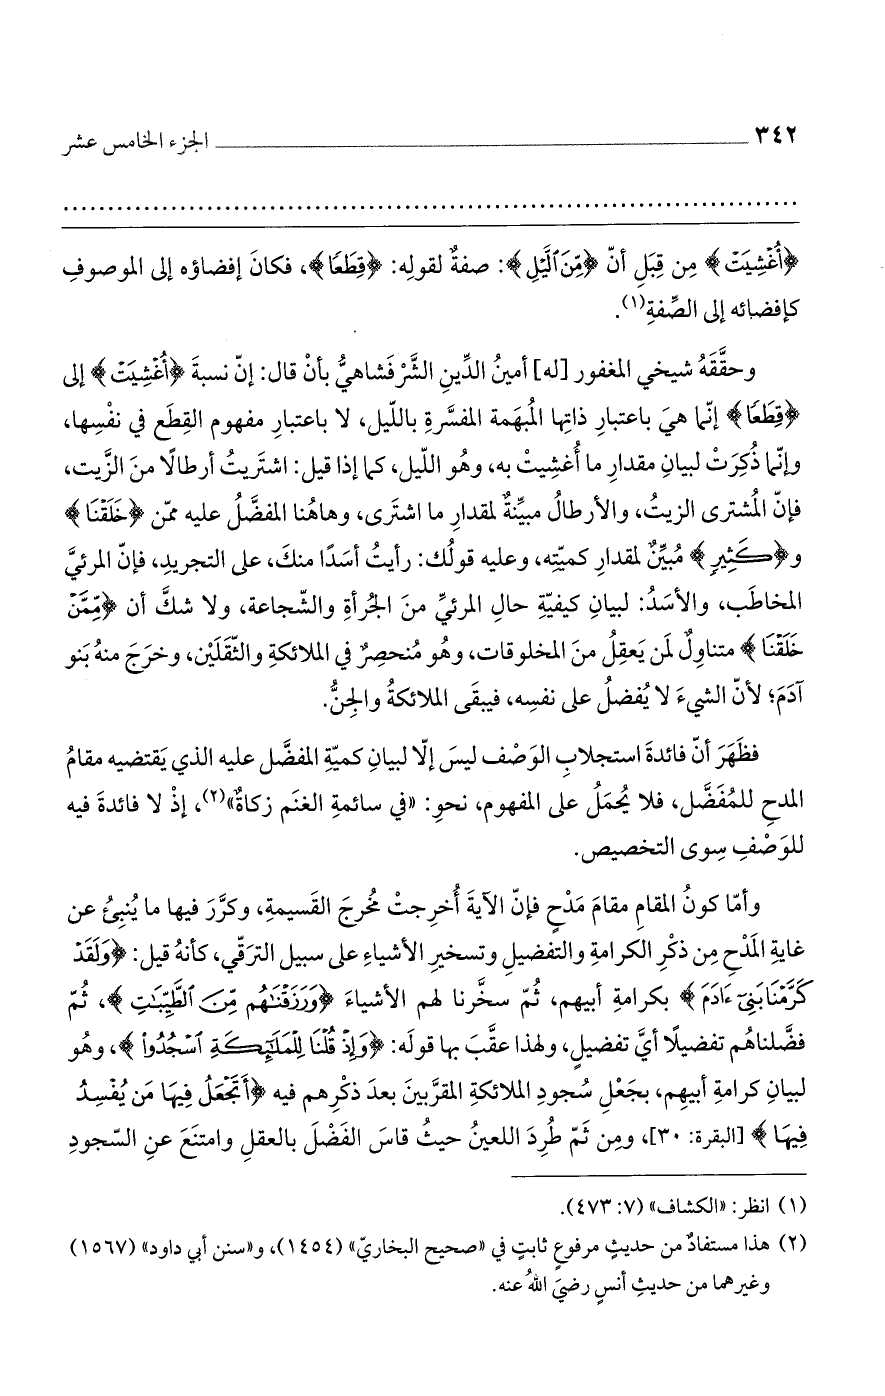 ٣٤٢ الجزء الخامس عشر
﴿أُغْشِيَتْ﴾ مِن قِبَلِ أنّ ﴿مِّنَ ٱلَّيْلِ﴾: صفةٌ لقولِه: ﴿قِطَعًا﴾، فكانَ إفضاؤه إلى الموصوفِ
كإفضائه إلى الصِّفةِ(١).
وحقَّقَهُ شيخي المغفور [له] أمينُ الدِّينِ الشَّرْفَشاهيُّ بأنْ قال: إنّ نسبةَ ﴿أُغْشِيَتْ﴾ إلى
﴿قِطَعًا﴾ إنّما هيَ باعتبارِ ذاتِها المُبهَمة المفسَّرةِ باللّيل، لا باعتبارِ مفهوم القِطَع في نفْسِها،
وإنّما ذُكِرَتْ لبيانِ مقدارِ ما أُغشِيتْ به، وهُو اللّيل، كما إذا قيل: اشتَريتُ أرطالًا منَ الزَّيت،
فإنّ المُشترى الزيتُ، والأرطالُ مبيِّنةٌ لمقدارِ ما اشتَرى، وهاهُنا المفضَّلُ عليه ممّن ﴿خَلَقْنَا﴾
و﴿كَثِيرٍ﴾ مُبيِّنٌ لمقدارِ كميّتِه، وعليه قولُك: رأيتُ أسَدًا منكَ، على التجريدِ، فإنّ المرئيَّ
المخاطَب، والأسَدُ: لبيانِ كيفيّةِ حالِ المرئيِّ منَ الجُرأةِ والشّجاعة، ولا شكَّ أن ﴿مِّمَّنْ
خَلَقْنَا﴾ متناولٌ لمَن يَعقِلُ منَ المخلوقات، وهُو مُنحصِرٌ في الملائكةِ والثّقَلَيْن، وخرَجَ منهُ بَنو
آدَمَ؛ لأنّ الشيءَ لا يُفضلُ على نفسِه، فيبقَى الملائكةُ والجِنُّ.
فظَهَرَ أنّ فائدةَ استجلابِ الوَصْف ليسَ إلّا لبيانِ كميّةِ المفضَّل عليه الذي يَقتضيه مقامُ
المدحِ للمُفَضَّل، فلا يُحمَلُ على المفهوم، نحوِ: «في سائمةِ الغنَم زكاةٌ»(٢)، إذْ لا فائدةَ فيه
للوَصْفِ سِوى التخصيص.
وأمّا كونُ المقامِ مقامَ مَدْحٍ فإنّ الآيةَ أُخرِجتْ مُخرجَ القَسيمةِ، وكرَّرَ فيها ما يُنبِئُ عن
غايةِ المَدْحِ مِن ذكْرِ الكرامةِ والتفضيلِ وتسخيرِ الأشياءِ على سبيل الترَقّي، كأنهُ قيل: ﴿وَلَقَدْ
كَرَّمْنَا بَنِىٓ ءَادَمَ﴾ بكرامةِ أبيهم، ثُمّ سخَّرنا لهم الأشياءَ ﴿وَرَزَقْنَاهُم مِّنَ ٱلطَّيِّبَاتِ﴾، ثُمّ
فضَّلناهُم تفضيلًا أيَّ تفضيلٍ، ولهذا عقَّبَ بها قولَه: ﴿وَإِذْ قُلْنَا لِلْمَلَٰٓئِكَةِ ٱسْجُدُوا۟﴾، وهُو
لبيانِ كرامةِ أبيهِم، بجَعْلِ سُجودِ الملائكةِ المقرَّبينَ بعدَ ذكْرِهم فيه ﴿أَتَجْعَلُ فِيهَا مَن يُفْسِدُ
فِيهَا﴾ [البقرة: ٣٠]، ومِن ثَمّ طُرِدَ اللعينُ حيثُ قاسَ الفَضْلَ بالعقلِ وامتنَعَ عنِ السّجودِ
(١) انظر: «الكشاف» (٧: ٤٧٣).
(٢) هذا مستفادٌ من حديثٍ مرفوعٍ ثابتٍ في «صحيح البخاريّ» (١٤٥٤)، و«سنن أبي داود» (١٥٦٧)
وغيرهما من حديثِ أنسٍ رضيَ اللهُ عنه.